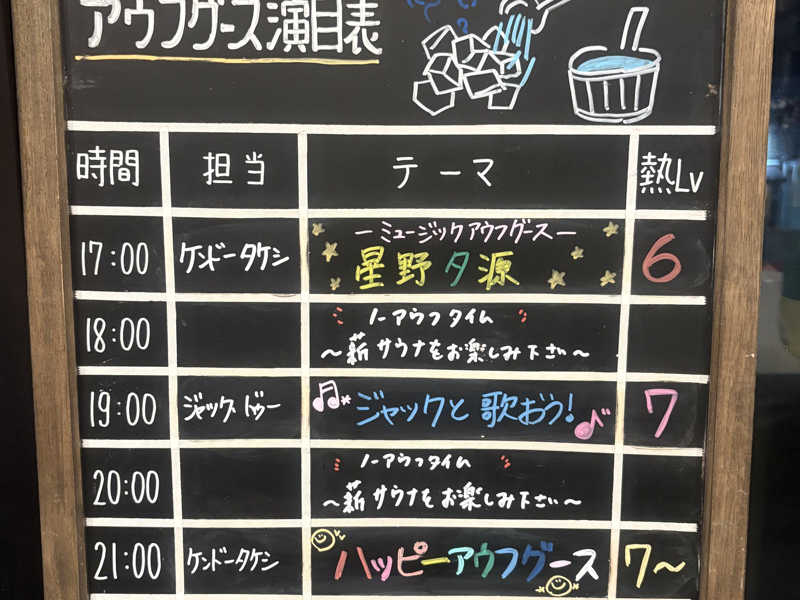 アウフグース演目表
時間 担当 テーマ 熱Lv
17:00 ケンドータケシ ーミュージックアウフグースー
星野夕源 6
18:00 ノーアウフタイム
～薪サウナをお楽しみ下さい～
19:00 ジャック・ドゥー ジャックと歌おう! 7
20:00 ノーアウフタイム
～薪サウナをお楽しみ下さい～
21:00 ケンドータケシ ハッピーアウフグース 7～